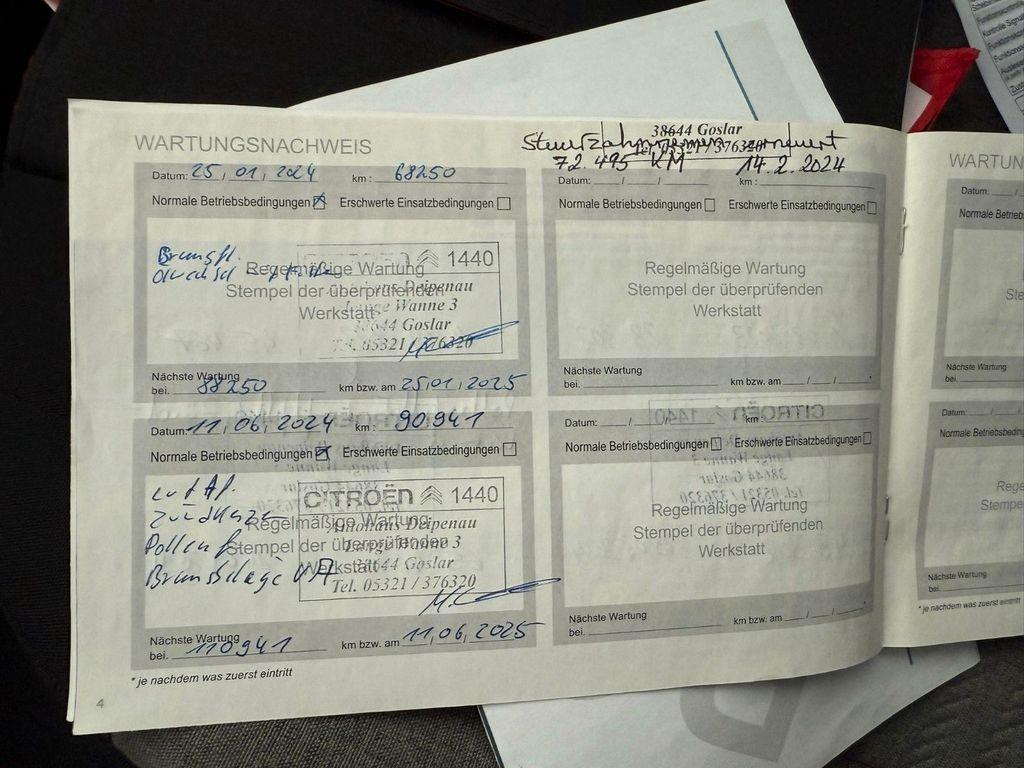 WARTUNGSNACHWEIS
38644 Goslar
Steuerzahnriemen erneuert
Tel. 05321 / 376320
72.495 KM 14.2.2024
Datum: 25, 01, 2024 km : 68250
Normale Betriebsbedingungen Erschwerte Einsatzbedingungen
1440
Regelmäßige Wartung
Stempel der überprüfenden
Werkstatt
Deipenau
Lange Wanne 3
38644 Goslar
Tel. 05321 / 376320
Nächste Wartung
bei. 88250 km bzw. am 25, 01, 2025
Datum: / / km :
Normale Betriebsbedingungen Erschwerte Einsatzbedingungen
Regelmäßige Wartung
Stempel der überprüfenden
Werkstatt
Nächste Wartung
bei. km bzw. am / /
Datum: 11, 06, 2024 km : 90941
Normale Betriebsbedingungen Erschwerte Einsatzbedingungen
CITROËN 1440
Regelmäßige Wartung
Autohaus Deipenau
Stempel der überprüfenden
Lange Wanne 3
Werkstatt
38644 Goslar
Tel. 05321 / 376320
Luftf.
Zündkerze
Pollenf
Bremsbeläge VA
Nächste Wartung
bei. 110941 km bzw. am 11, 06, 2025
Datum: / / km :
Normale Betriebsbedingungen Erschwerte Einsatzbedingungen
Regelmäßige Wartung
Stempel der überprüfenden
Werkstatt
Nächste Wartung
bei. km bzw. am / /
* je nachdem was zuerst eintritt
4
WARTUN
Datum: /
Normale Betriebsbeding
Nächste Wartung
bei.
Datum: /
Normale Betriebsbeding
Nächste Wartung
bei.
* je nachdem was zuerst eintritt